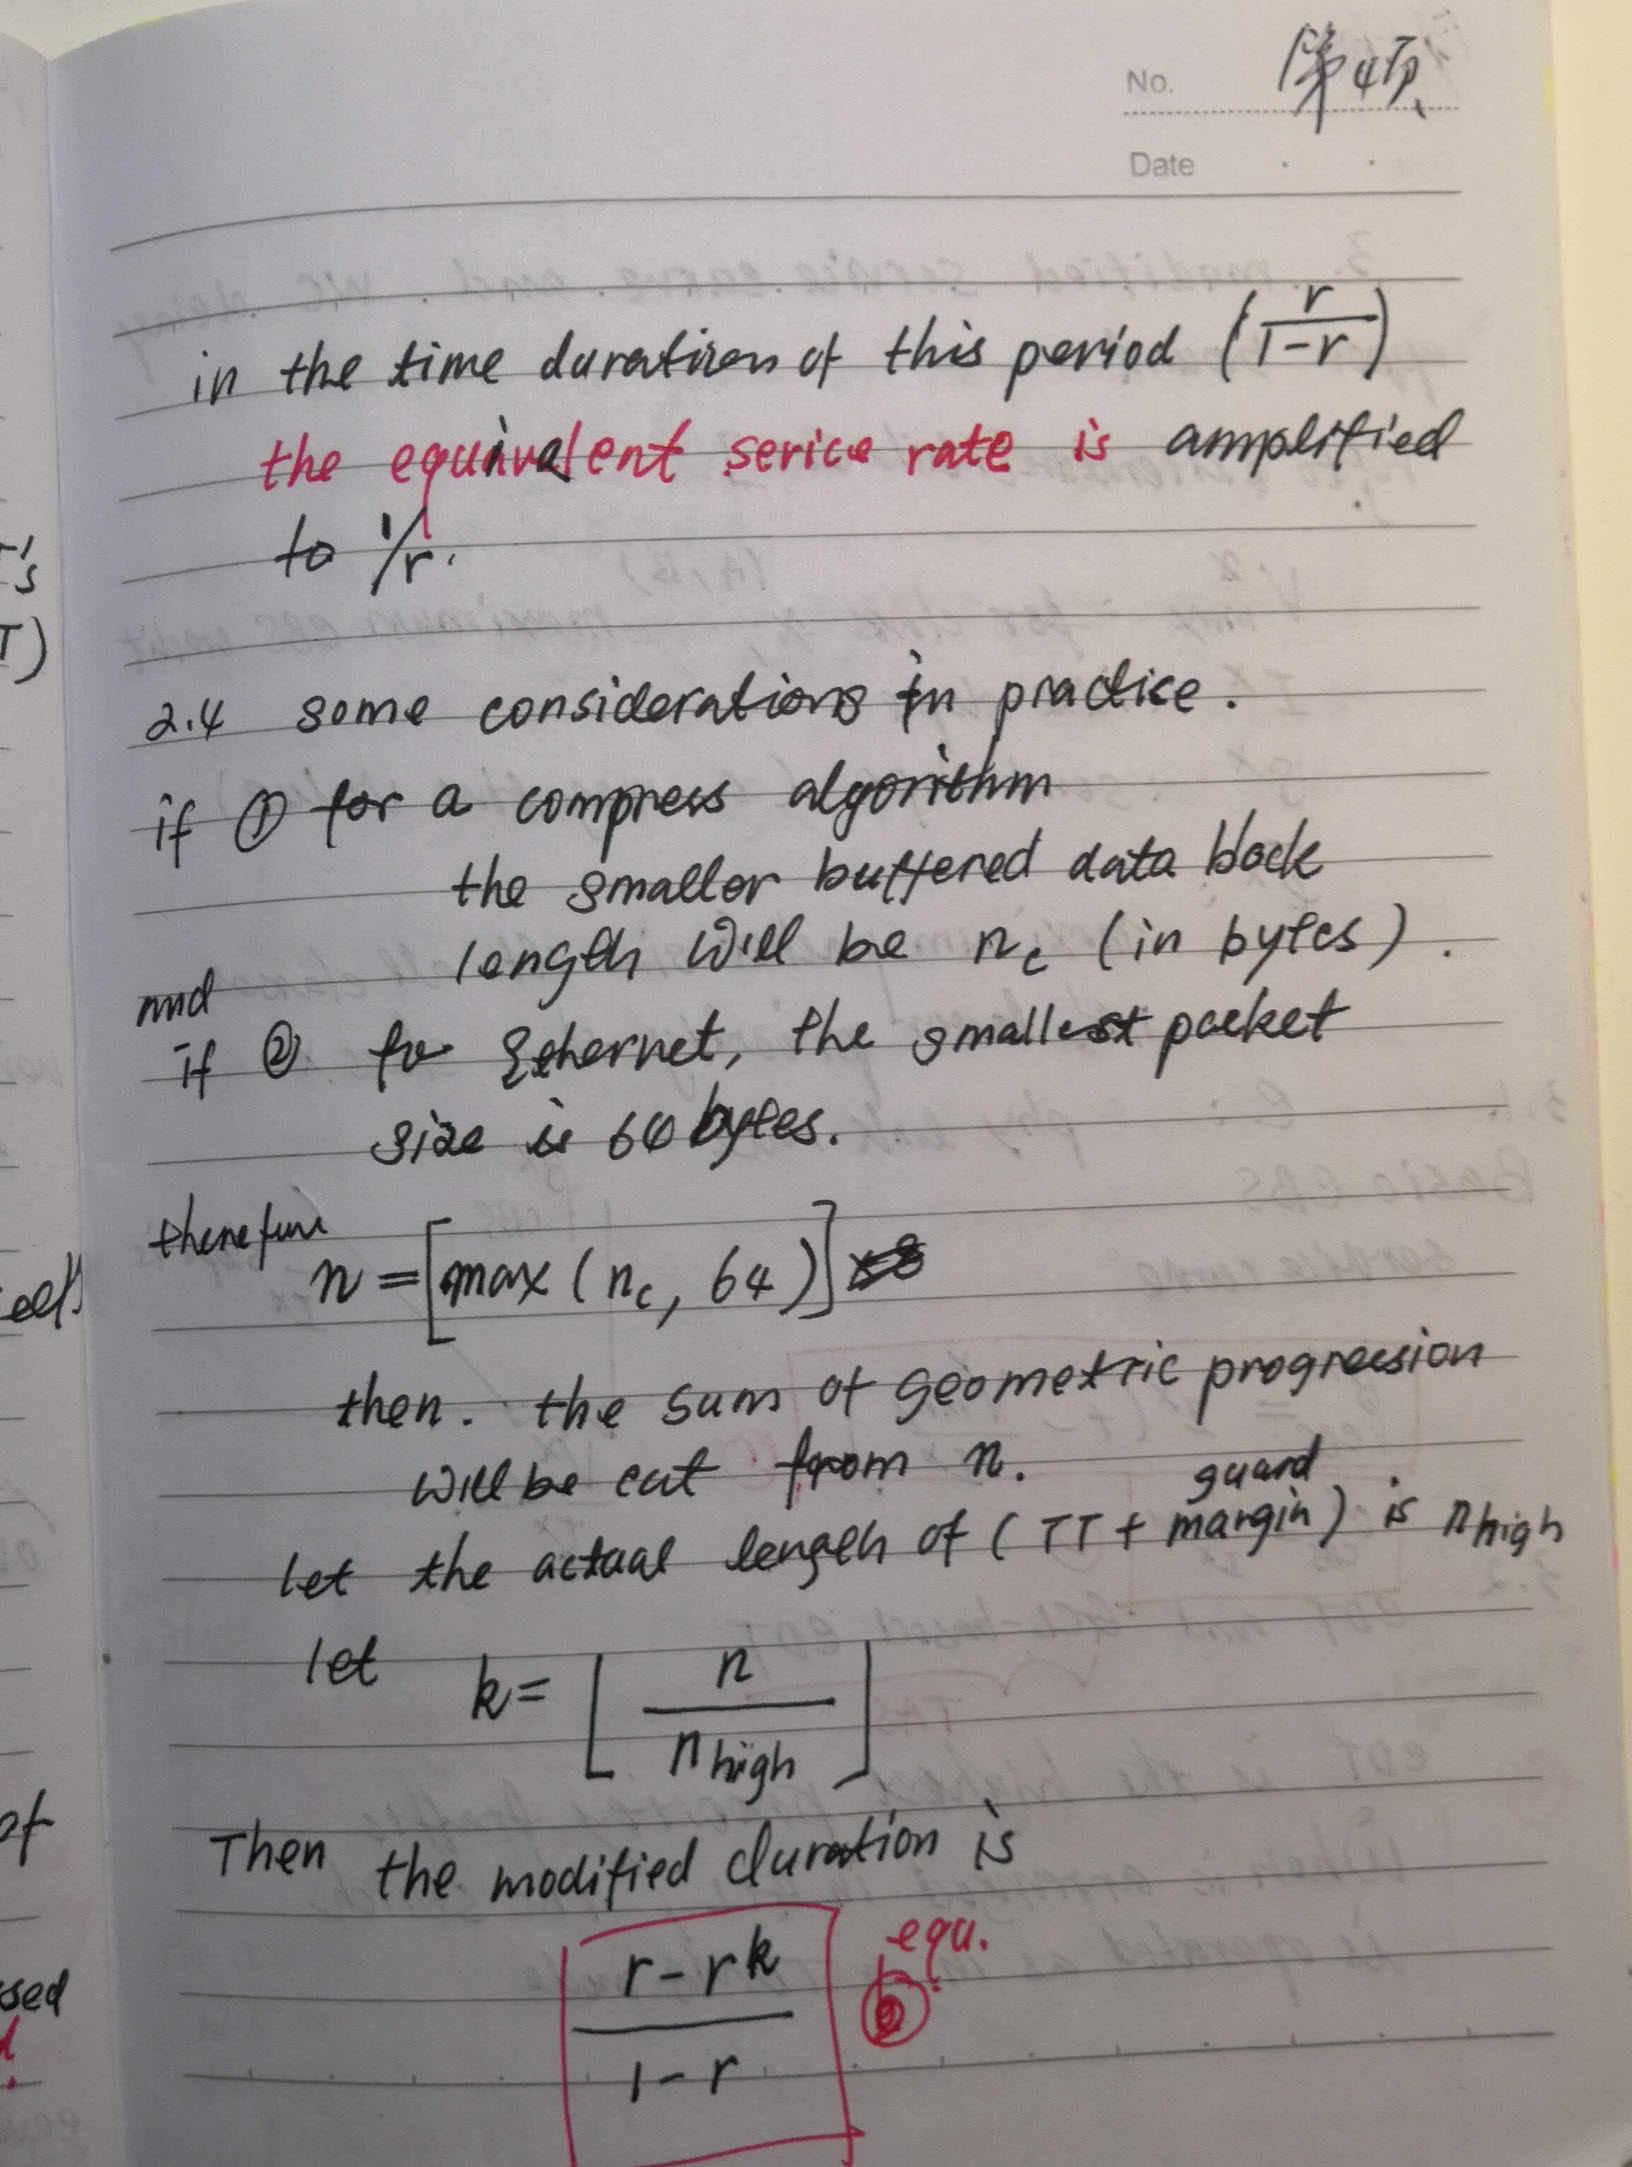 No. 第4页
Date
in the time duration of this period (r/1-r)
the equivalent serice rate is amplified
to 1/r.
2.4 some considerations in practice.
if ① for a compress algorithm
the smaller buffered data block
length will be nc (in bytes).
and
if ② for Ethernet, the smallest packet
size is 64 bytes.
therefore
n = [max (nc, 64)]
then. the sum of geometric progression
will be cut from n.
guard
let the actual length of (TT + margin) is nhigh
let k = ⌊n/nhigh⌋
Then the modified duration is
r - rk
equ.
1-r